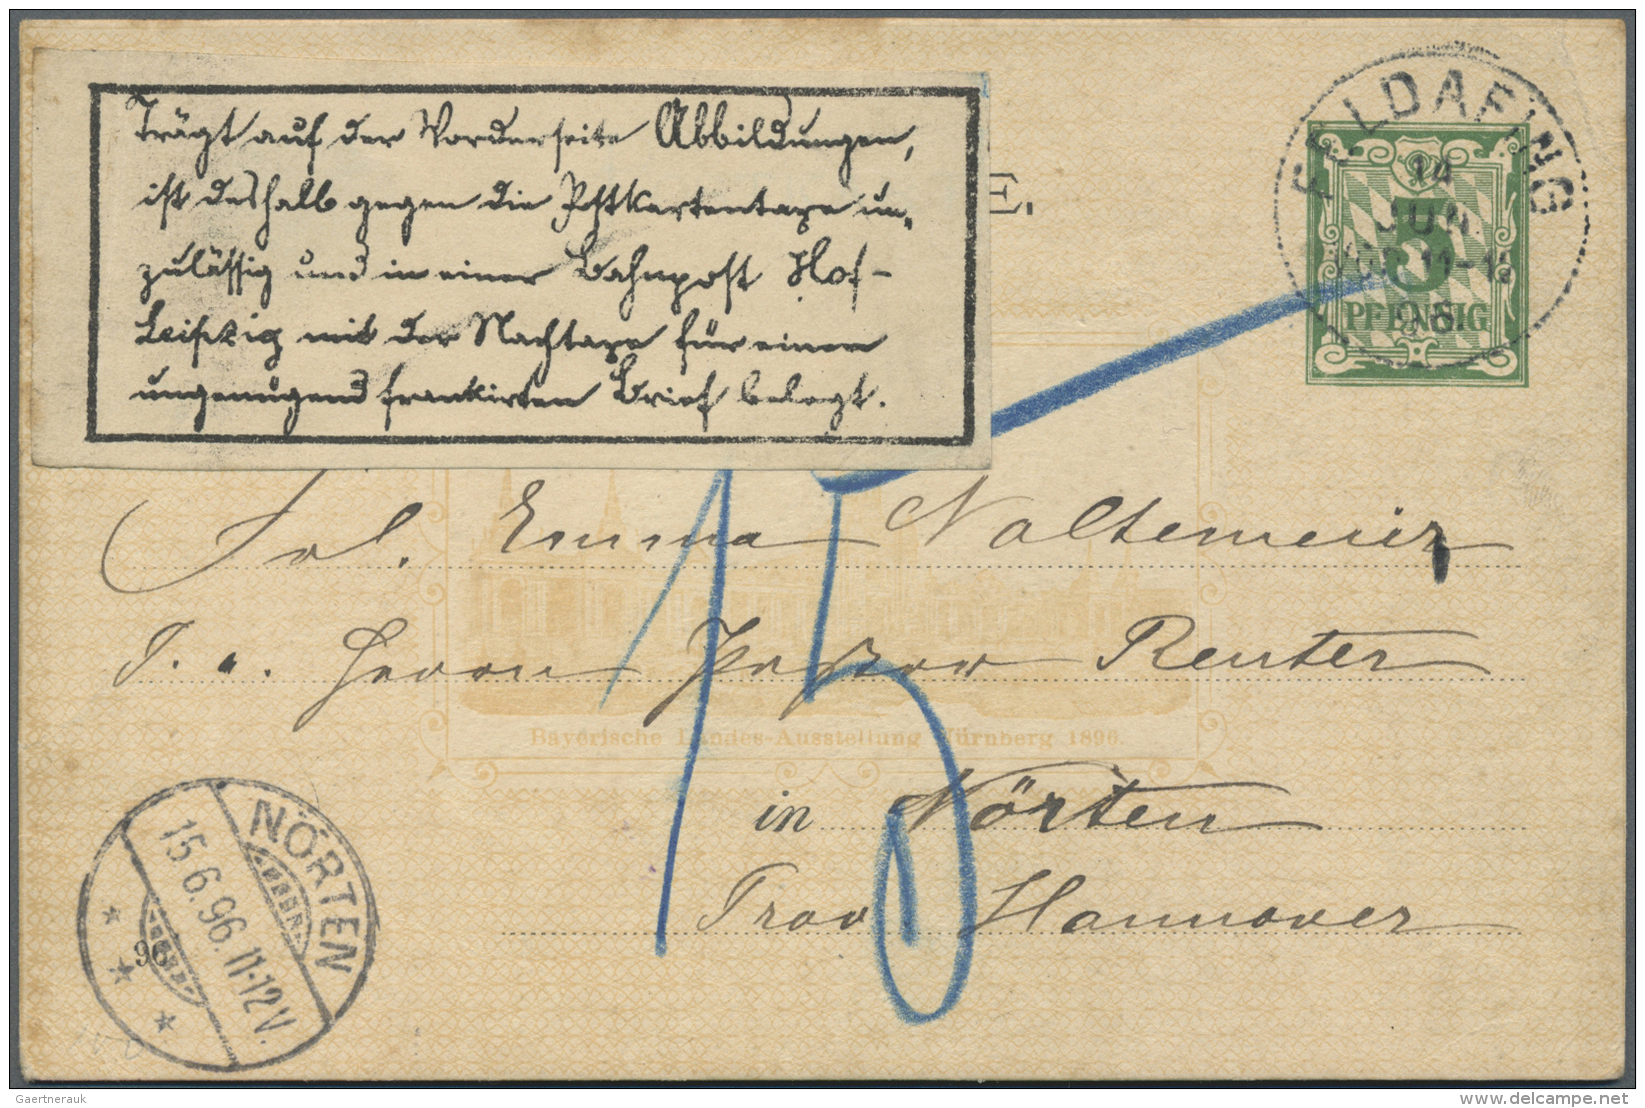 Trägt auf der Vorderseite Abbildungen,
ist deshalb gegen die Postkartentaxe un-
zulässig und in einer Bahnpost Hof-
Leipzig mit der Nachtaxe für einen
ungenügend frankirten Brief belegt.
E.
FELDAFING
14
JUN.
11-12
96.
5
PFENNIG
15
Frl. Emma Noltemeier
Herrn Reuter
Bayerische Landes-Ausstellung Nürnberg 1896.
in Nörten
Prov Hannover
NÖRTEN
15.6.96.11-12V.
96
Gaertnerauk
delcampe.net